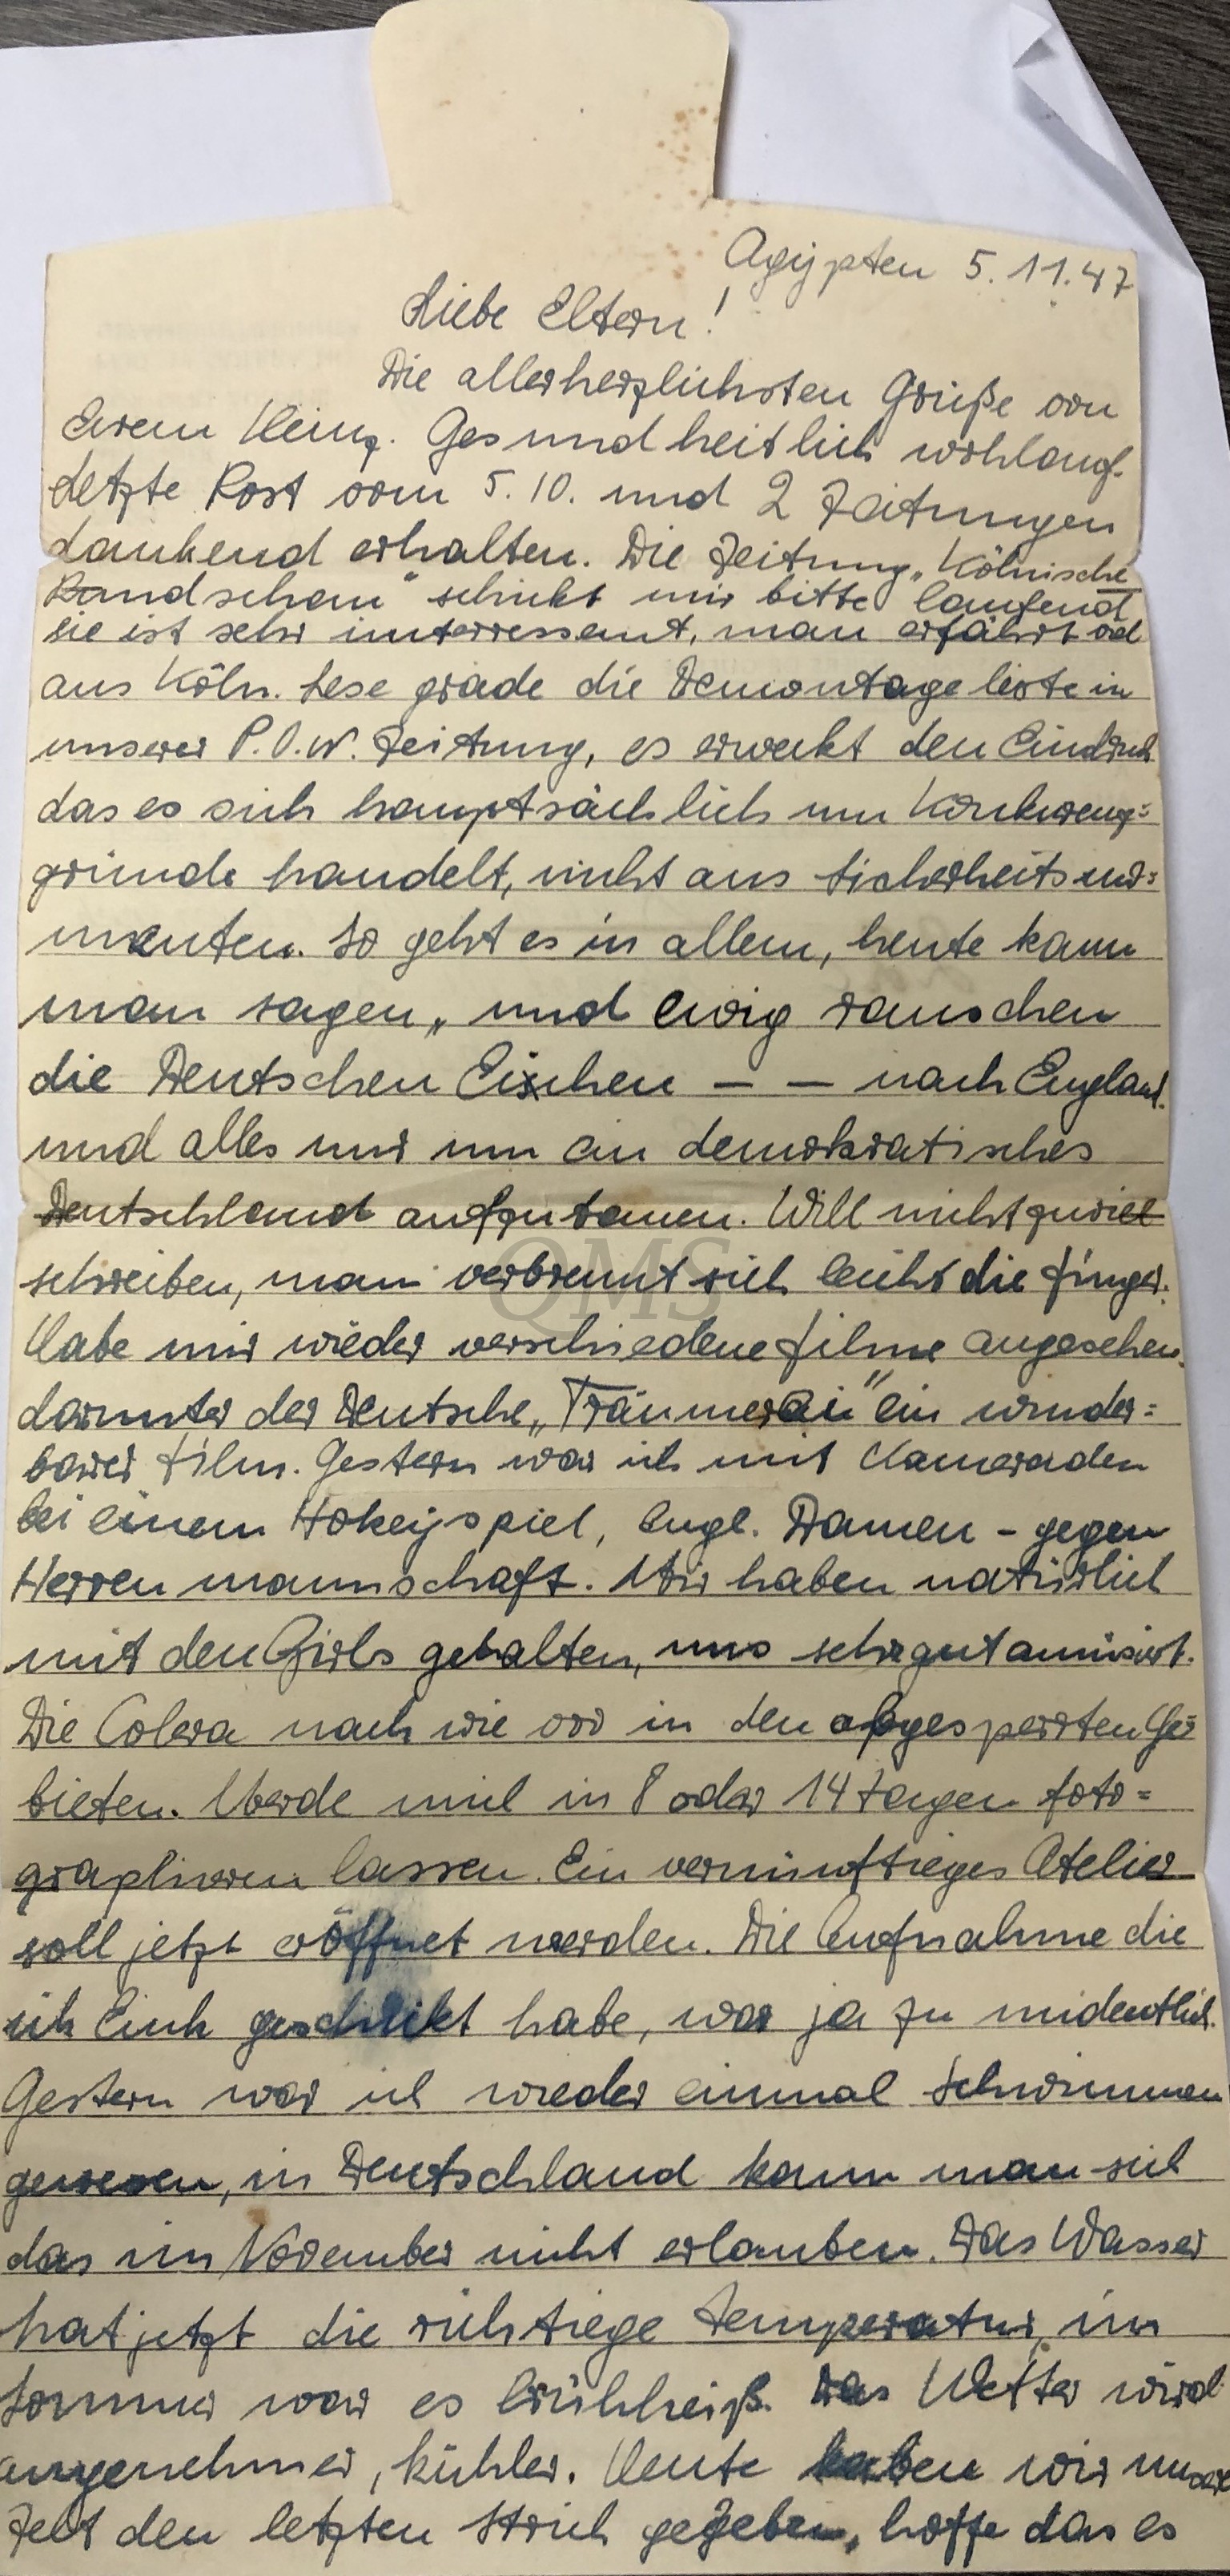 Agypten 5.11.47
Liebe Eltern!
Die allerherzlichsten Grüße von
Eurem Heinz. Gesundheitlich wohlauf.
Letzte Post vom 5.10. und 2 Zeitungen
dankend erhalten. Die Zeitung „Kölnische
Rundschau" schickt mir bitte laufend
sie ist sehr interressant, man erfährt viel
aus Köln. Lese grade die Demontageliste in
unserer P.O.W. Zeitung, es erwekt den Eindruck
das es sich hauptsächlich um Konkurenz=
gründe handelt, nicht aus Sicherheits
menten. So geht es in allem, heute kann
man sagen „ und ewig rauschen
die Deutschen Eichen — — nach England.
und alles nur um ein demokratisches
Deutschland aufzubauen. Will nicht zuviel
schreiben, man verbrennt sich leicht die Finger.
Habe mir wieder verschiedene Filme angesehen,
darunter der Deutsche „Träumerei" ein wunder=
barer Film. Gestern war ich mit Kameraden
bei einem Hokeyspiel, Engl. Damen - gegen
Herrenmannschaft. Wir haben natürlich
mit den Girls gehalten, uns sehr gut amüsirt.
Die Colera nach wie vor in den abgesperrten Ge=
bieten. Werde mich in 8 oder 14 Tagen foto=
graphieren lassen. Ein vernünftieges Atelier
soll jetzt eröffnet werden. Die Aufnahme die
ich Euch geschickt habe, war ja zu undeutlich.
Gestern war ich wieder einmal Schwimmen
gewesen, in Deutschland kann man sich
das im November nicht erlauben. Das Wasser
hat jetzt die richtiege Temperatur, im
Sommer war es brühheiß. Das Wetter wird
angenehmer, kühler. Heute haben wir unsere
Zelt den letzten Strich gegeben, hoffe das es
QMS